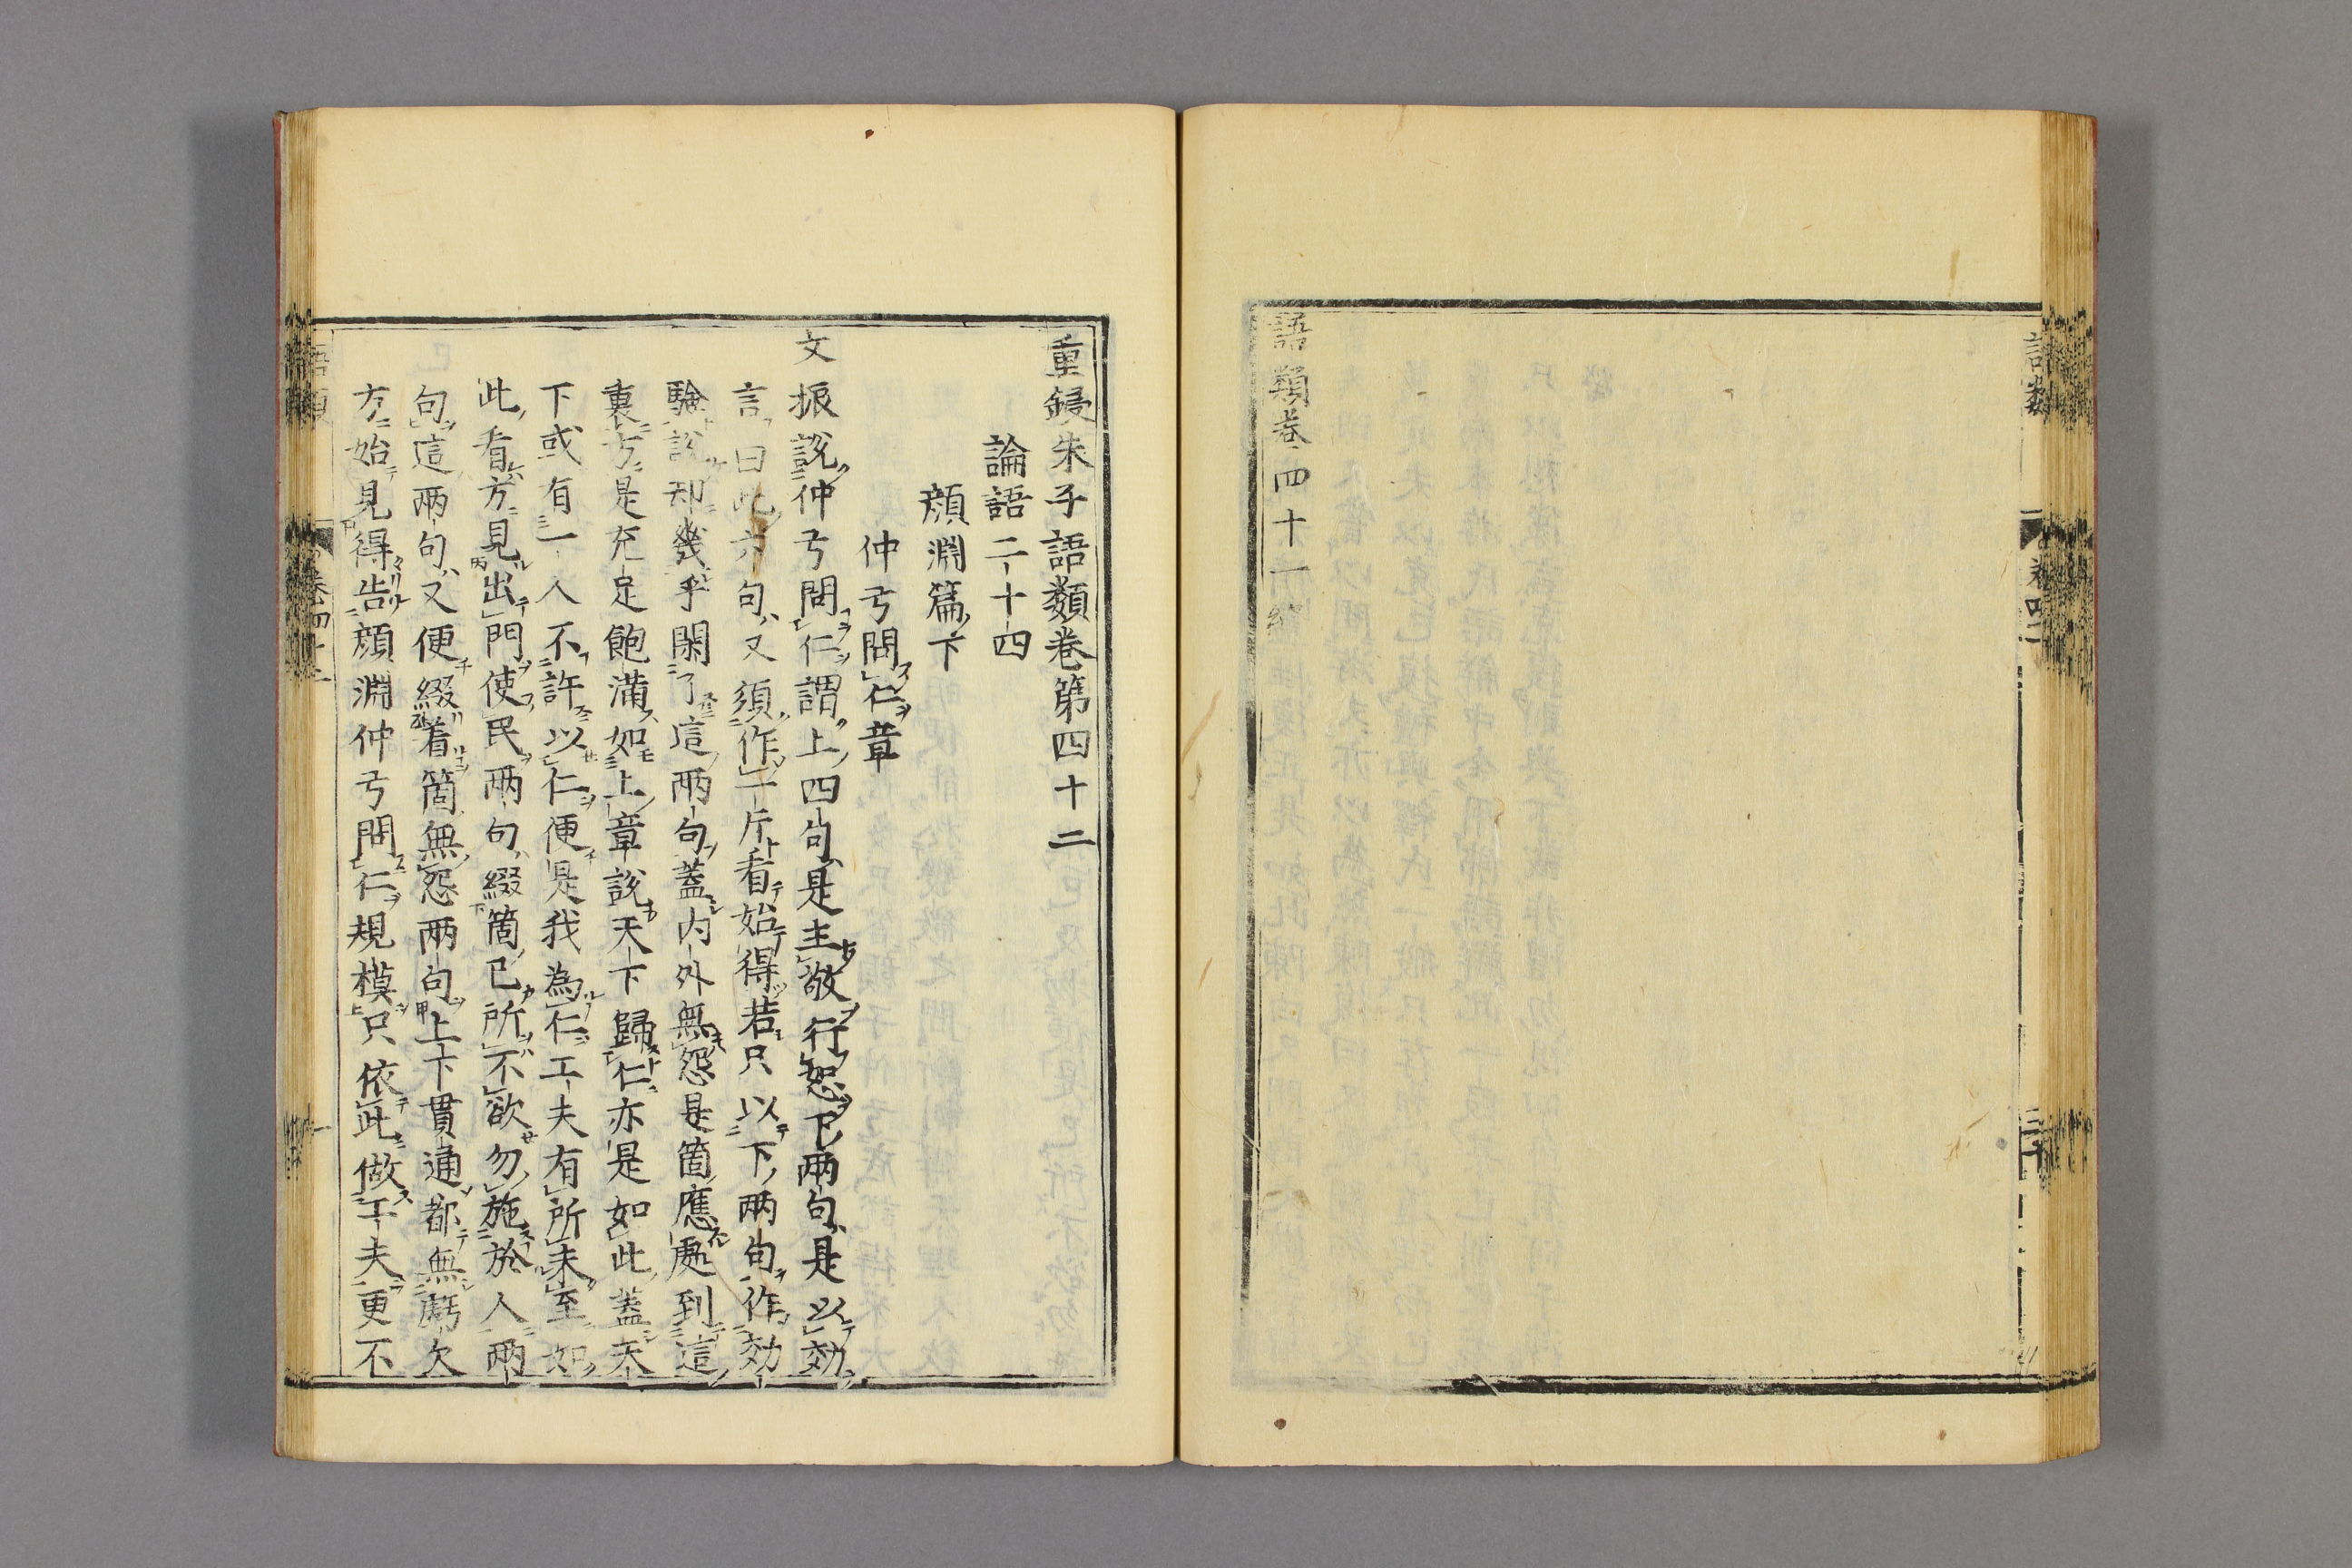 語類卷四十一終
重鋟朱子語類卷第四十二
論語二十四
顔淵篇下
仲弓問仁章
文振說仲弓問仁謂上四句是主敬行恕下兩句是以効
言曰此六句又須作一片看始得若只以下兩句作効
驗說却幾乎閑了這兩句蓋内外無怨是箇應處到這
裏方是充足飽滿如上章說天下歸仁亦是如此蓋天
下或有一人不許以仁便是我為仁工夫有所未至如
此看方見出門使民兩句綴箇已所不欲勿施於人兩
句這兩句又便綴着箇無怨兩句上下貫通都無虧欠
方始見得告顔淵仲弓問仁規模只依此做工夫更不
語類 卷四十二 一